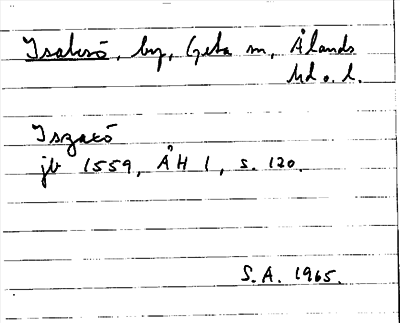 Isaksö, by, Geta sn, Ålands
hd o. l.
Iszacö
jb 1559, ÅH 1, s. 120.
S.A. 1965.